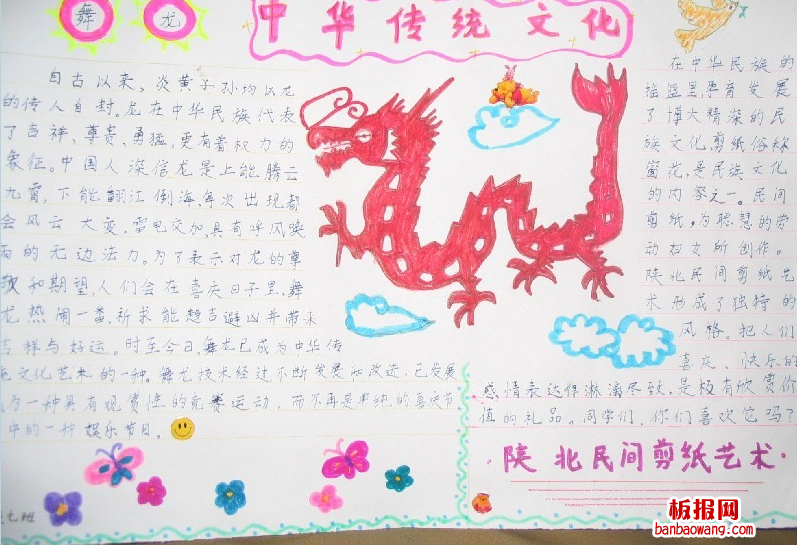 舞 龙
中华传统文化
自古以来,炎黄子孙均以龙
的传人自封。龙在中华民族代表
了吉祥、尊贵、勇猛,更有着权力的
象征。中国人深信龙是上能腾云
九霄,下能翻江倒海,每次出现都
会风云大变,雷电交加,具有呼风唤
雨的无边法力。为了表示对龙的尊
敬和期望,人们会在喜庆日子里,舞
龙热闹一番,祈求能趋吉避凶并带来
吉祥与好运。时至今日,舞龙已成为中华传
文化艺术的一种。舞龙技术经过不断发展和改进,已发展
为一种具有观赏性的竞赛运动,而不再是单纯的喜庆节
中的一种娱乐节目。
在中华民族的
摇篮里,孕育发展
了博大精深的民
族文化,剪纸俗称
窗花,是民族文化
的内容之一。民间
剪纸,为聪慧的劳
动妇女所创作。
陕北民间剪纸艺
术形成了独特的
风格。把人们
喜庆、快乐的
感情表达得淋漓尽致,是极有欣赏价
值的礼品。同学们,你们喜欢它吗?
·陕北民间剪纸艺术·
七班
板报网
banbaowang.com